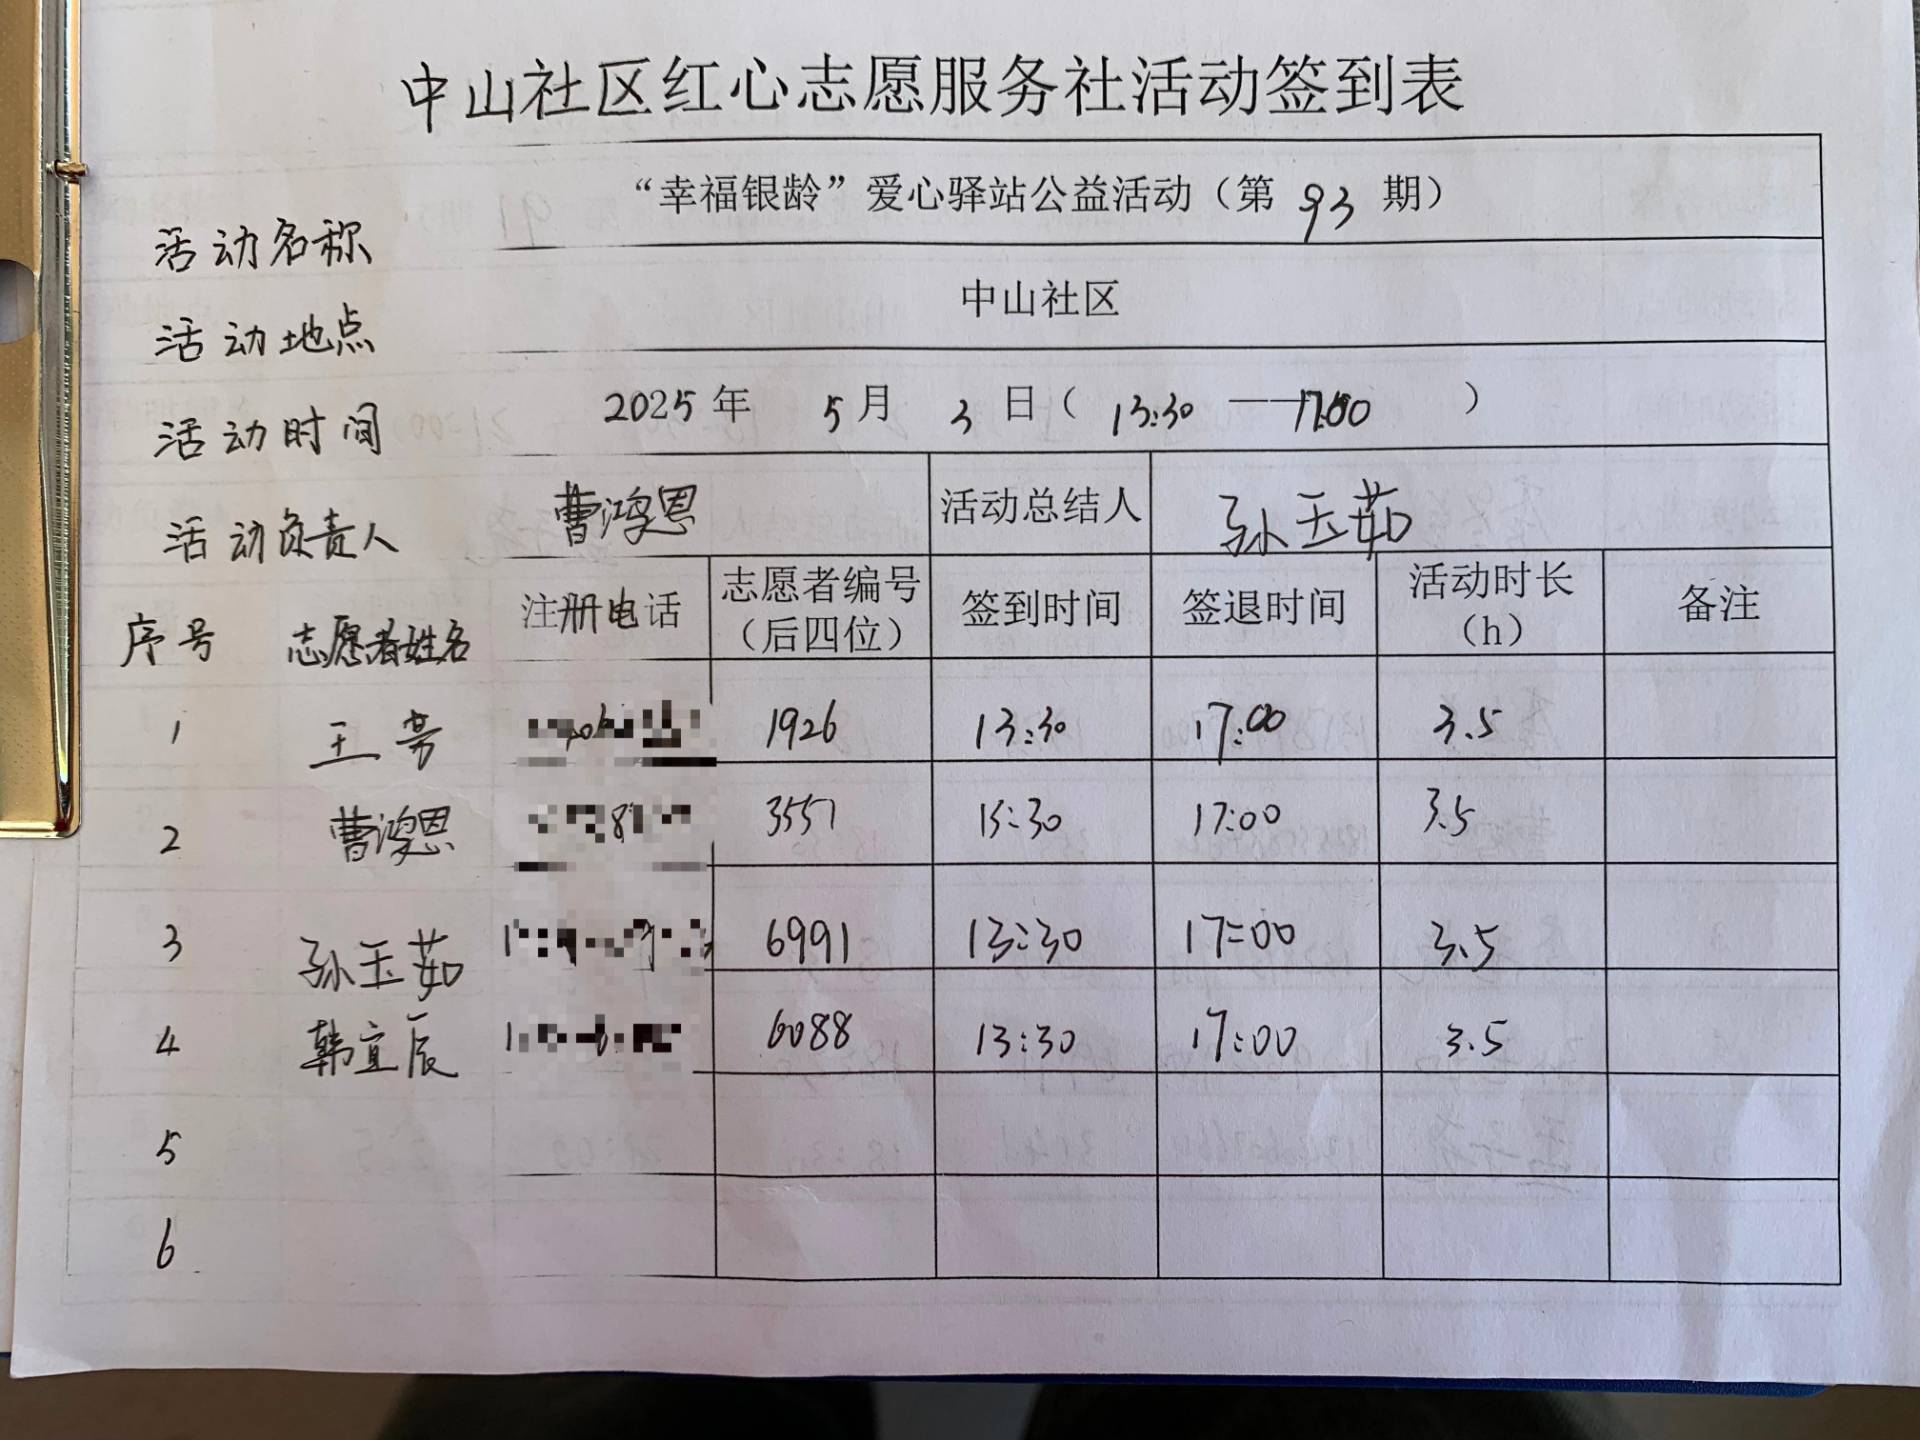 中山社区红心志愿服务社活动签到表
活动名称 “幸福银龄”爱心驿站公益活动(第 93 期)
活动地点 中山社区
活动时间 2025 年 5 月 3 日( 13:30 —17:00 )
活动负责人 曹鸿恩 活动总结人 孙玉茹
序号 志愿者姓名 注册电话 志愿者编号(后四位) 签到时间 签退时间 活动时长(h) 备注
1 王芳 1926 13:30 17:00 3.5
2 曹鸿恩 3557 13:30 17:00 3.5
3 孙玉茹 6991 13:30 17:00 3.5
4 韩宜辰 6088 13:30 17:00 3.5
5
6